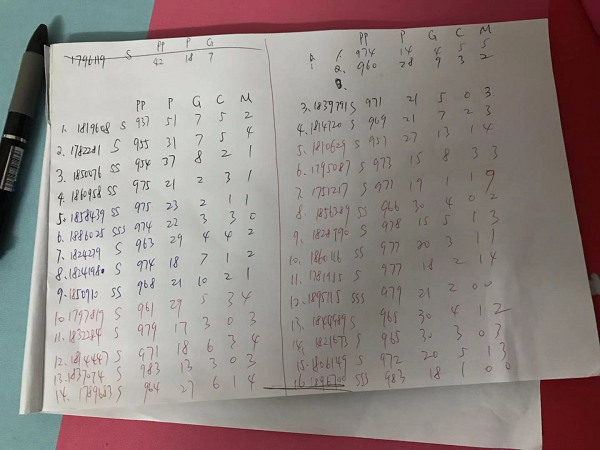 PP P G
1796119 S 92 18 7
PP P G C M
1. 1819608 S 937 51 7 5 2
2. 1782281 S 955 31 7 5 4
3. 1850076 SS 954 37 8 2 1
4. 1860958 SS 975 21 2 3 1
5. 1858439 SS 975 23 2 1 1
6. 1886025 SSS 974 22 3 3 0
7. 1824279 S 963 29 4 4 2
8. 1824198 S 974 18 7 1 2
9. 1850910 SS 968 21 10 2 1
10. 1797817 S 961 29 5 3 4
11. 1832284 S 979 17 3 0 3
12. 1814447 S 971 18 6 3 4
13. 1837074 S 983 13 3 0 3
14. 1789683 S 964 27 6 1 4
PP P G C M
1. 974 14 4 5 5
2. 960 28 9 3 2
3.
3. 1839791 S 971 21 5 0 3
4. 1814720 S 969 21 7 2 3
5. 1810629 S 957 27 13 1 4
6. 1795087 S 973 15 8 3 3
7. 1751217 S 977 19 1 1 9
8. 1856389 SS 966 30 4 0 2
9. 1828790 S 978 15 5 1 3
10. 1860116 SS 977 20 3 1 1
11. S 977 18 2 1 4
12. 1895115 SSS 979 21 2 0 0
13. S 965 30 4 1 2
14. S 965 30 3 0 3
15. 1806149 S 972 20 5 1 3
16. 1896700 SSS 983 18 1 0 0